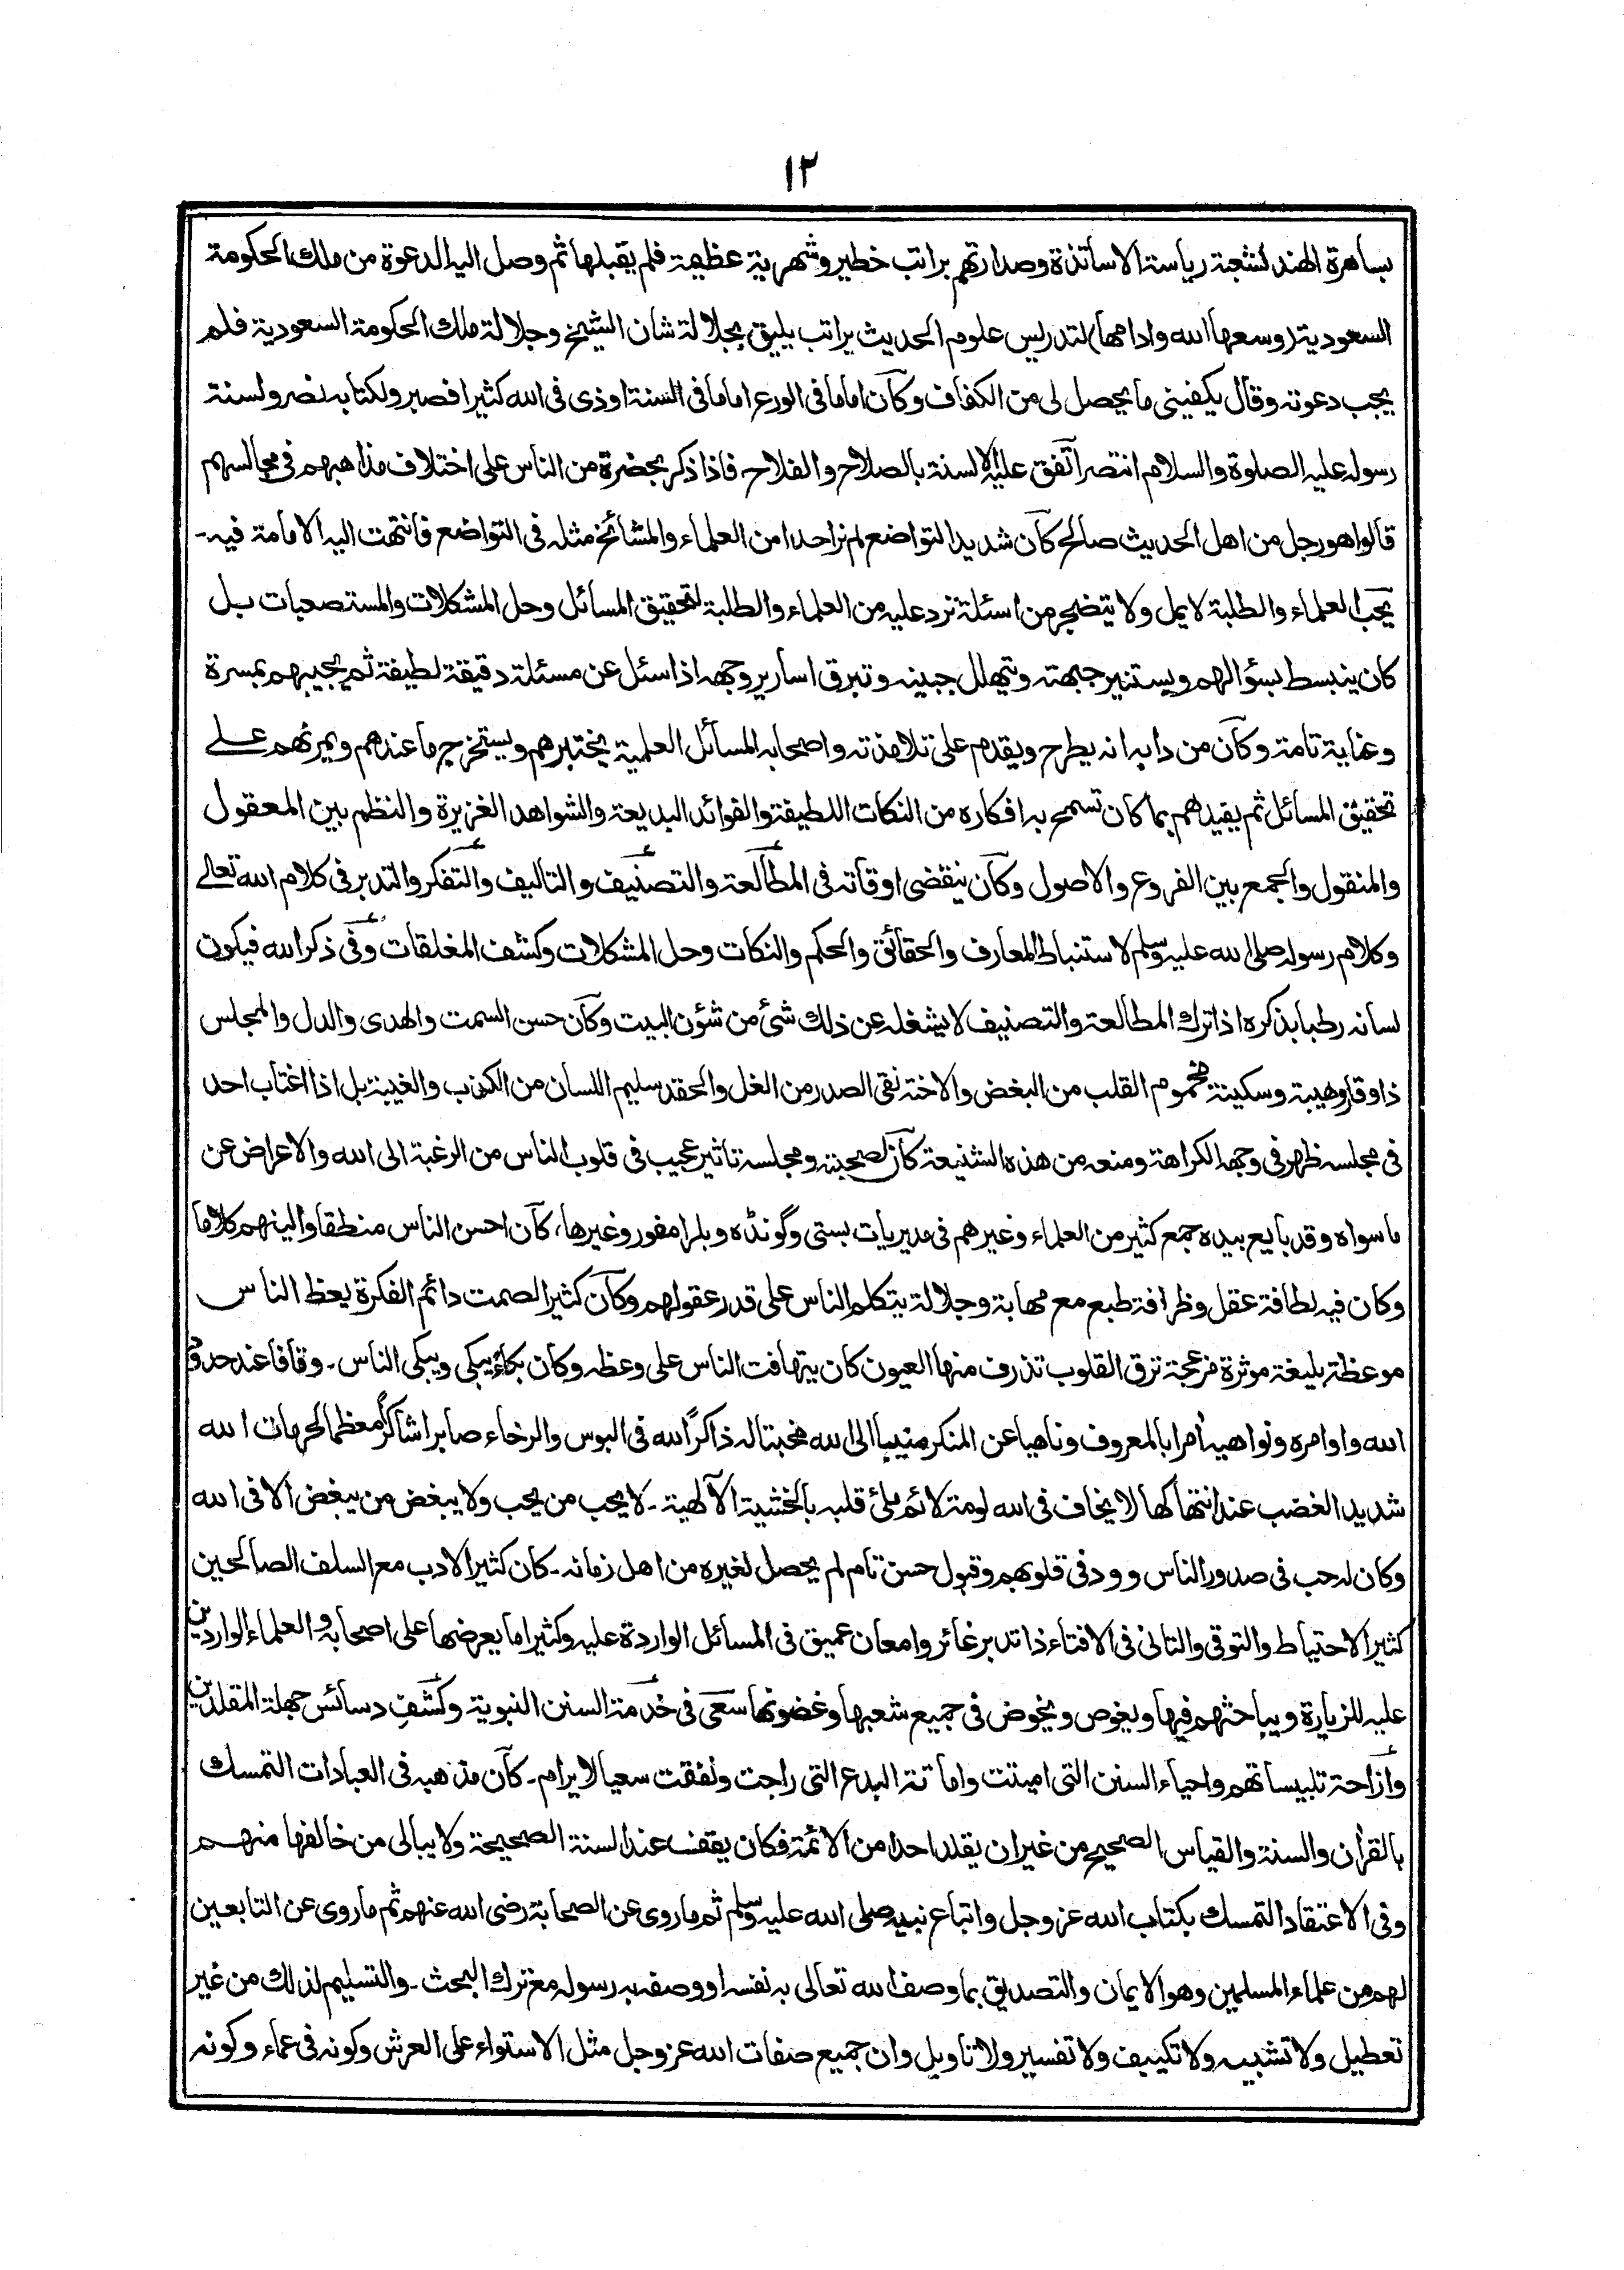 ١٢
بساهرة الهند لشعبة رياسة الاساتذة وصدارتهم براتب خطير وشهرية عظيمة فلم يقبلها ثم وصل اليه الدعوة من ملك الحكومة
السعودية (وسعها الله وادامها) لتدريس علوم الحديث براتب يليق بجلالة شان الشيخ وجلالة ملك الحكومة السعودية فلم
يجب دعوته وقال يكفيني ما يحصل لي من الكفاف وكان اماما في الورع اماما في السنة اوذي في الله كثيرا فصبر ولكتابه نصر ولسنة
رسوله عليه الصلوة والسلام انتصر اتفق عليه الالسنة بالصلاح والفلاح فاذا ذكر بحضرة من الناس على اختلاف مذاهبهم في مجالسهم
قالوا هو رجل من اهل الحديث صالح كان شديد التواضع لم نر احدا من العلماء والمشائخ مثله في التواضع فانتهت اليه الامامة فيه۔
يحب العلماء والطلبة لا يمل ولا يتضجر من اسئلة ترد عليه من العلماء والطلبة لتحقيق المسائل وحل المشكلات والمستصعبات بل
كان ينبسط بسؤالهم ويستنير جبهته ويتهلل جبينه وتبرق اسارير وجهه اذا سئل عن مسئلة دقيقة لطيفة ثم يجيبهم بمسرة
وعناية تامة وكان من دابه انه يطرح ويقدم على تلامذته واصحابه المسائل العلمية يختبرهم ويستخرج ما عندهم ويمرنهم على
تحقيق المسائل ثم يفيدهم بما كان تسمح به افكاره من النكات اللطيفة والفوائد البديعة والشواهد الغزيرة والنظم بين المعقول
والمنقول والجمع بين الفروع والاصول وكان ينقضى اوقاته في المطالعة والتصنيف والتاليف والتفكر والتدبر في كلام الله تعالى
وكلام رسوله صلى الله عليه وسلم لاستنباط المعارف والحقائق والحكم والنكات وحل المشكلات وكشف المغلقات وفي ذكر الله فيكون
لسانه رطبا بذكره اذا ترك المطالعة والتصنيف لا يشغله عن ذلك شئ من شئون البيت وكان حسن السمت والهدى والدل والمجلس
ذا وقار وهيبة وسكينة مخموم القلب من البغض والاخنة نقي الصدر من الغل والحقد سليم اللسان من الكذب والغيبة بل اذا اغتاب احد
في مجلسه ظهر في وجهه الكراهة ومنعه من هذه الشنيعة كان لصحبته ومجلسه تاثير عجيب في قلوب الناس من الرغبة الى الله والاعراض عن
ما سواه وقد بايع بيده جمع كثير من العلماء وغيرهم في مديريات بستي وگونڈه وبلرامفور وغيرها، كان احسن الناس منطقا والينهم كلاما
وكان فيه لطافة عقل وظرافة طبع مع مهابة وجلالة يتكلم الناس على قدر عقولهم وكان كثير الصمت دائم الفكرة يعظ الناس
موعظة بليغة موثرة مزعجة ترق القلوب تذرف منها العيون كان يتهافت الناس على وعظه وكان بكاء يبكي ويبكى الناس۔ وقافا عند حدود
الله واوامره ونواهيه أمرا بالمعروف وناهيا عن المنكر منيبا الى الله مخبتا له ذاكرًا لله في البوس والرخاء صابرا شاكرًا معظما لحرمات الله
شديد الغضب عند انتهاكها لا يخاف في الله لومة لائم ملئ قلبه بالخشية الآلهية۔ لا يحب من يحب ولا يبغض من يبغض الا في الله
وكان له حب في صدور الناس وود في قلوبهم وقبول حسن تام لم يحصل لغيره من اهل زمانه۔ كان كثير الادب مع السلف الصالحين
كثير الاحتياط والتوقي والتاني في الافتاء ذا تدبر غائر وامعان عميق في المسائل الواردة عليه وكثيرا ما يعرضها على اصحابه والعلماء الواردين
عليه للزيارة ويباحثهم فيها ويغوص ويخوض في جميع شعبها وغضونها سعى في خدمة السنن النبوية وكشف دسائس جهلة المقلدين
وازاحة تلبيساتهم واحياء السنن التي اميتت واماتة البدع التي راجت ونفقت سعيا لا يرام۔ كان مذهبه في العبادات التمسك
بالقرأن والسنة والقياس الصحيح من غير ان يقلد احدا من الائمة فكان يقف عند السنة الصحيحة ولا يبالي من خالفها منهم
وفي الاعتقاد التمسك بكتاب الله عز وجل واتباع نبيه صلى الله عليه وسلم ثم ما روى عن الصحابة رضى الله عنهم ثم ما روى عن التابعين
لهم من علماء المسلمين وهو الايمان والتصديق بما وصف الله تعالى به نفسه او وصفه به رسوله مع ترك البحث۔ والتسليم لذلك من غير
تعطيل ولا تشبيه ولا تكييف ولا تفسير ولا تاويل وان جميع صفات الله عز وجل مثل الاستواء على العرش وكونه في عماء وكونه